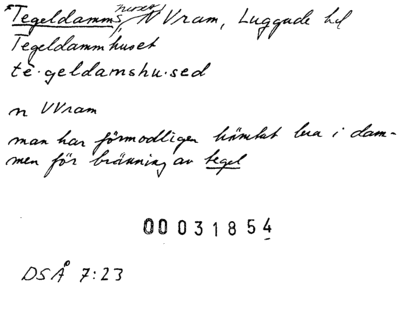 Tegeldamms N Vram, Luggude hd
Tegeldammhuset
te·geldamshu·sed
n VVram
man har förmodligen hämtat lera i dam-
men för bränning av tegel
00031854
DSÅ 7:23